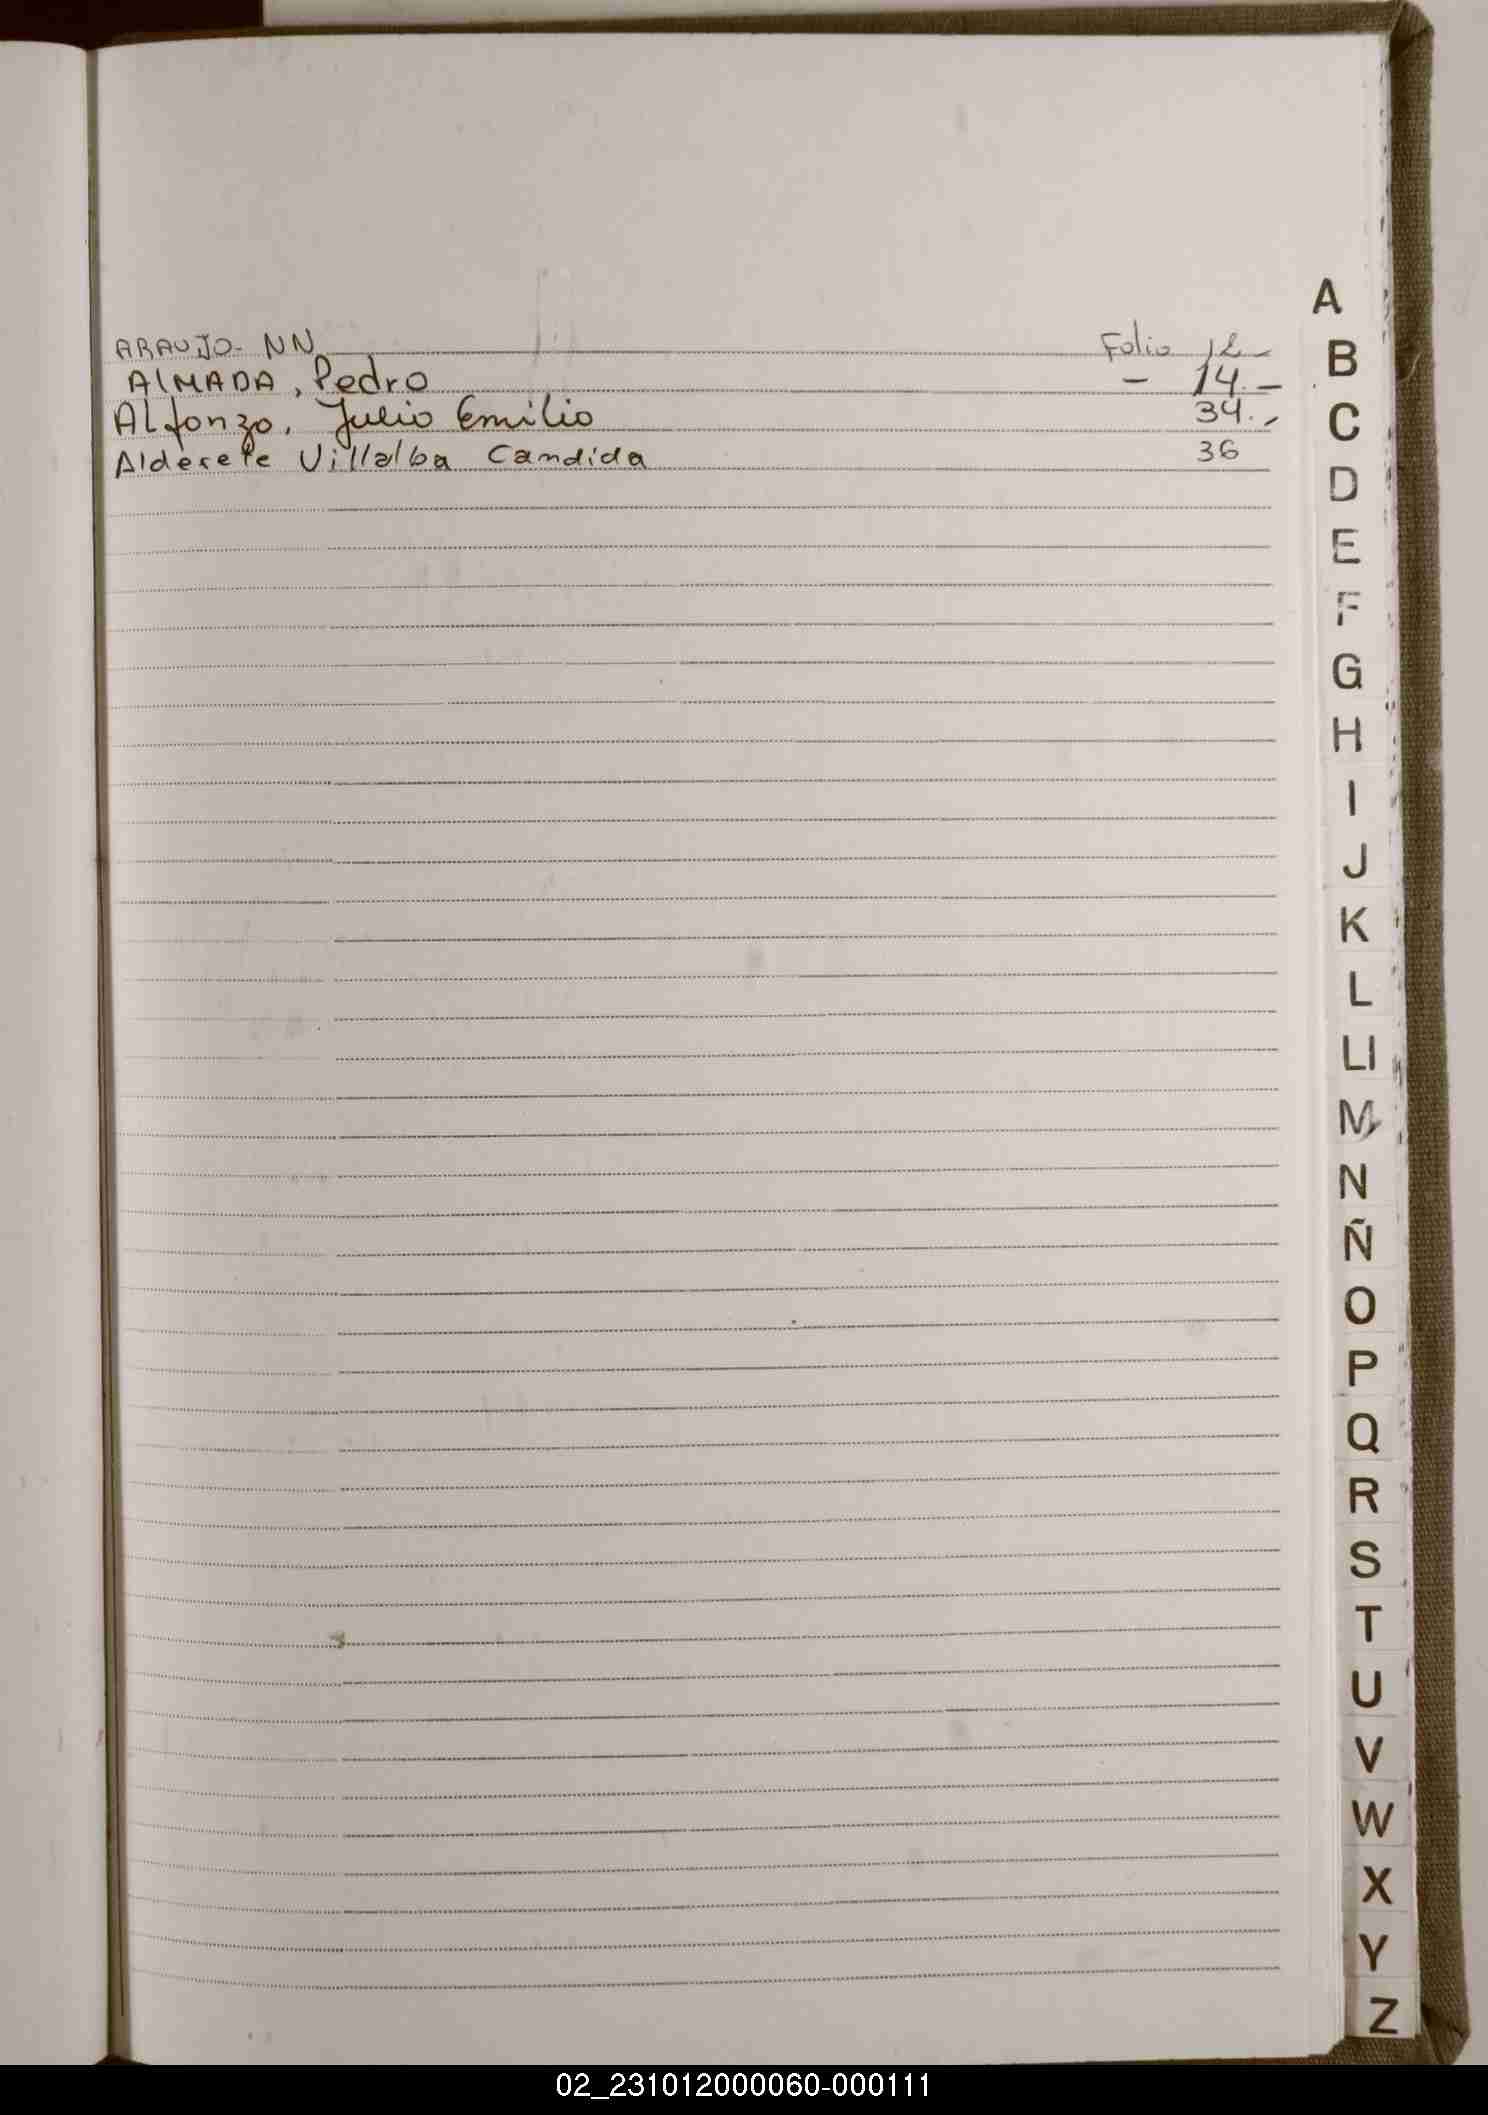 ARAUJO- NN Folio 12-
ALMADA, Pedro - 14.-
Alfonzo, Julio Emilio 34.-
Alderete Villalba Candida 36
A
B
C
D
E
F
G
H
I
J
K
L
Ll
M
N
Ñ
O
P
Q
R
S
T
U
V
W
X
Y
Z
02_231012000060-000111